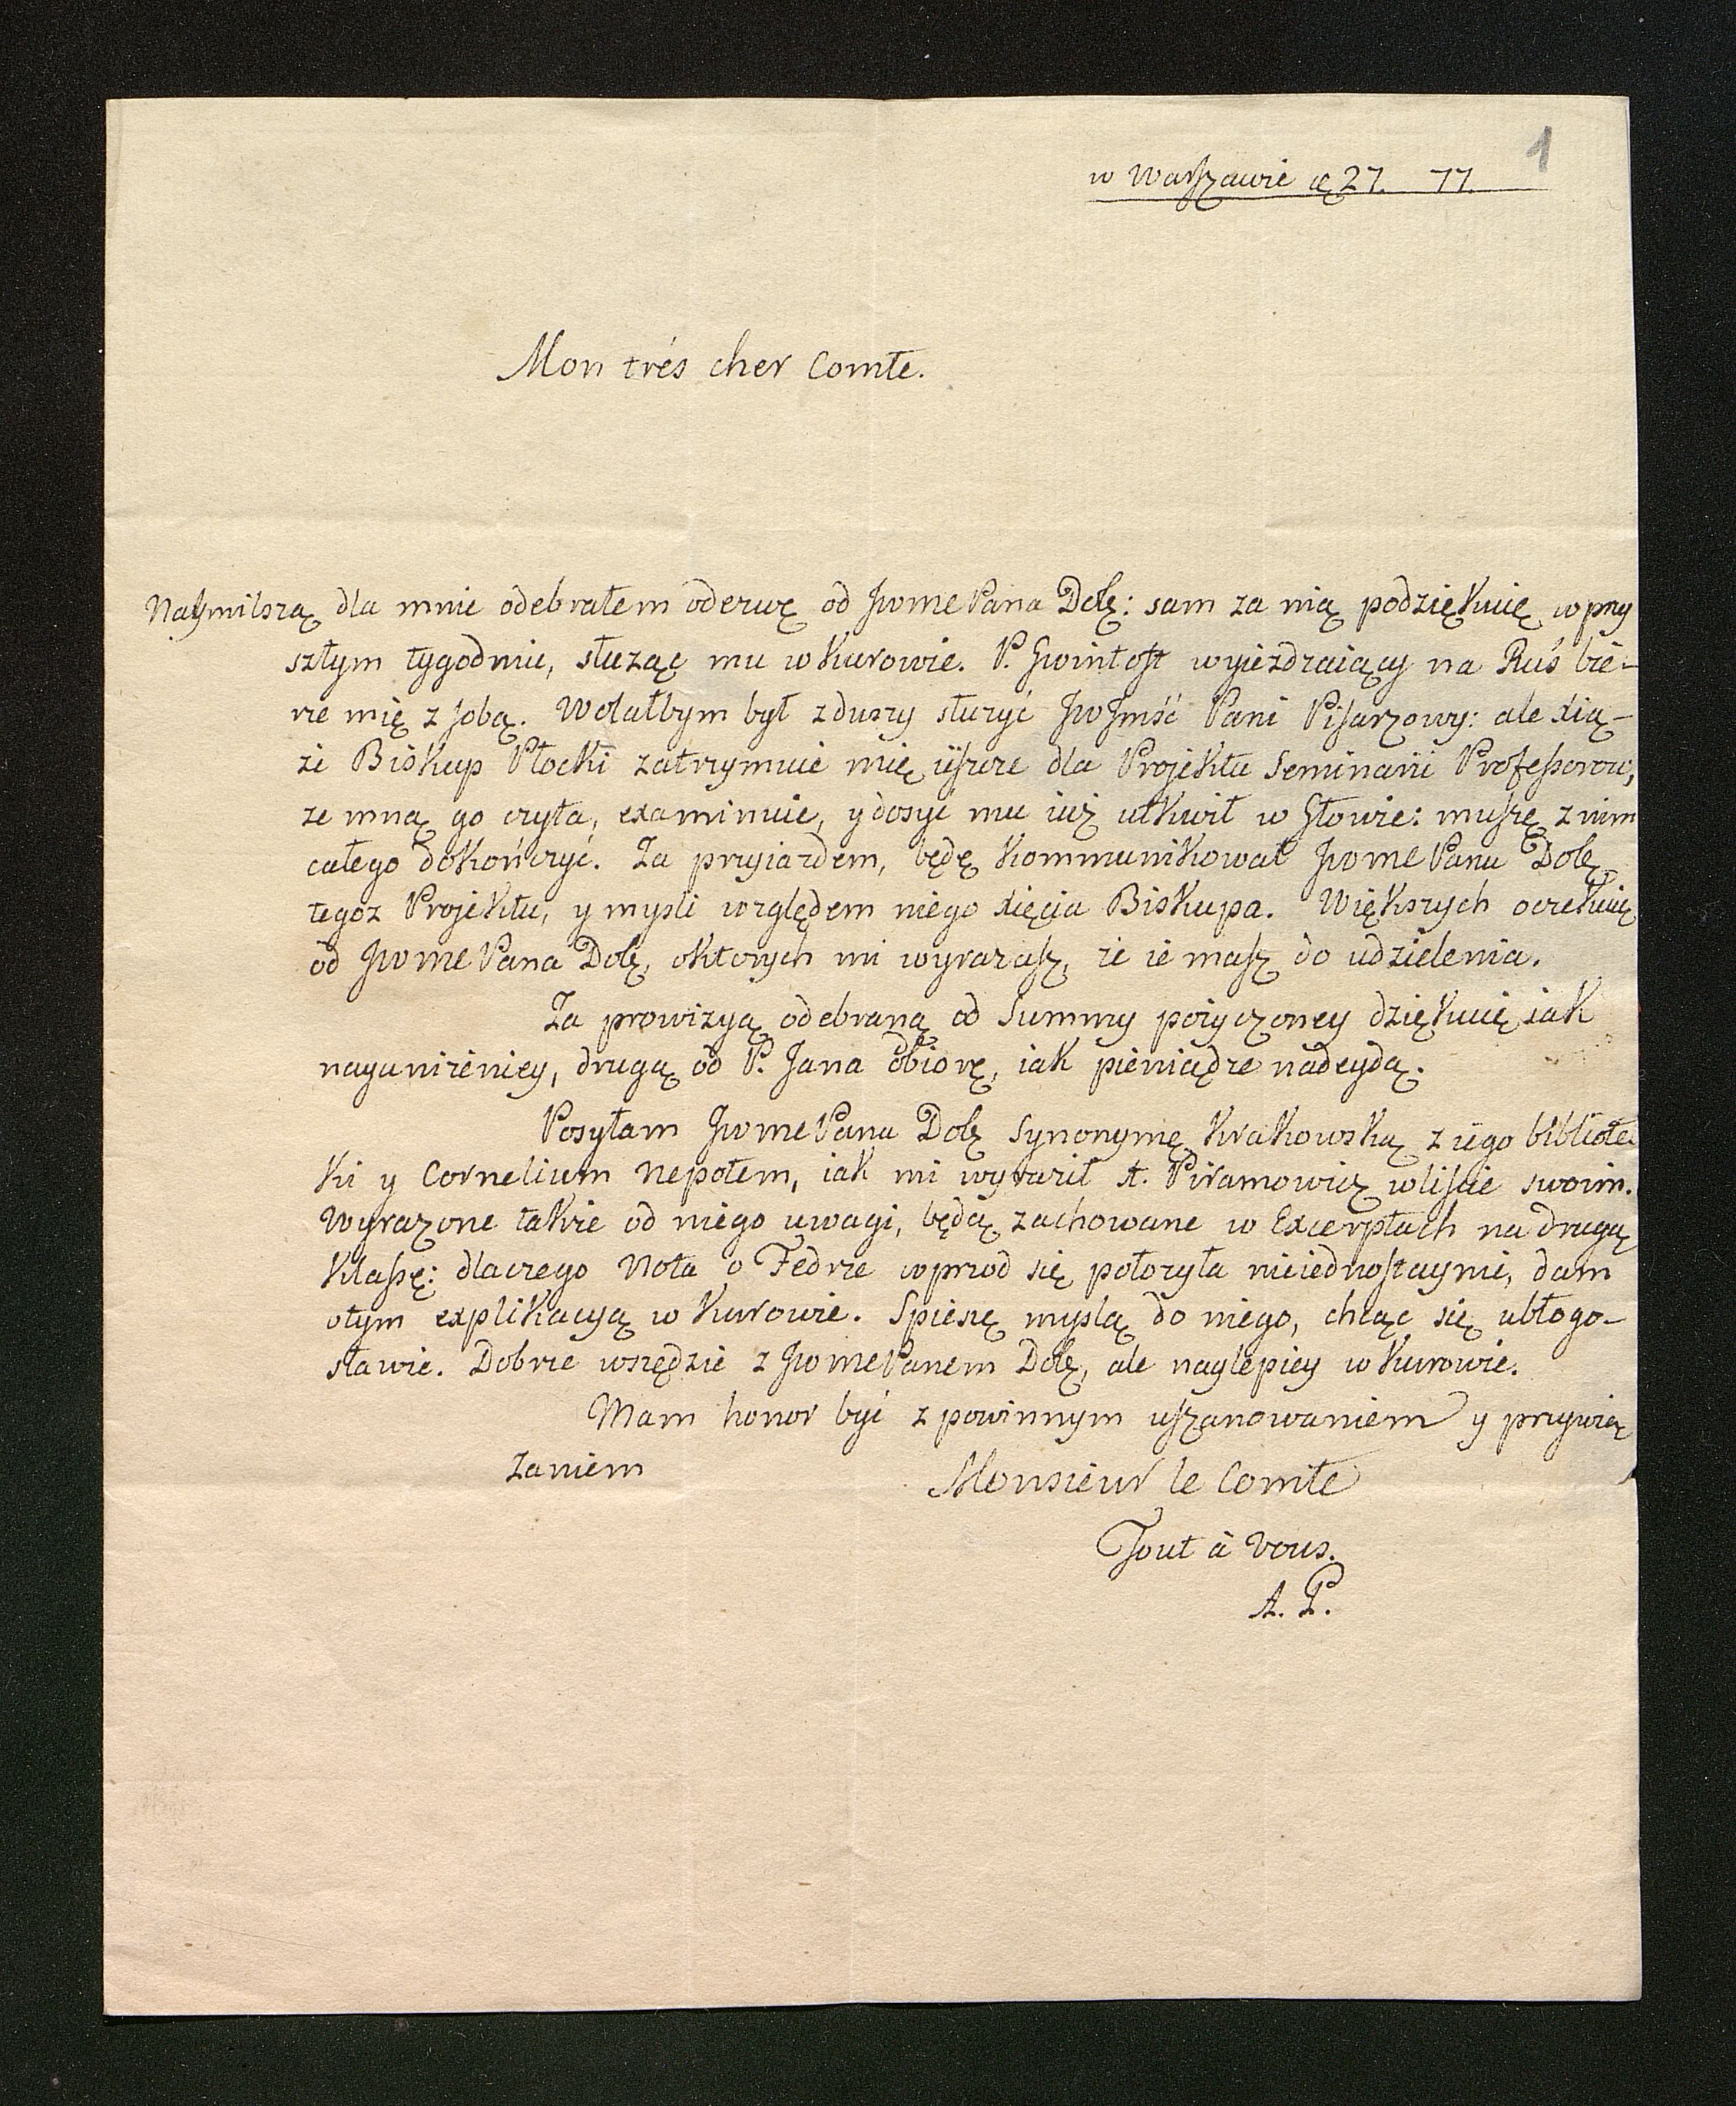 1
w Warszawie 27. 77.
Mon trés cher Comte.
Naymilszą dla mnie odebrałem oderwę od JwmePana Dolę: sam za nią podziękuię w przy
szłym tygodniu, służąc mu w Kurowie. P. Gwintoft wyieżdzaiący na Ruś bie-
rze mię z sobą. Wolałbym był z duszy służyć JwJmść Pani Pisarzowy: ale xią-
że Biskup Płocki zatrzymuie mię ieszcze dla Projektu Seminarii Professorow,
ze mną go czyta, examinuie, y dosyć mu iuż utkwił w Głowie: muszę z nim
całego dokończyć. Za przyiazdem, będę kommunikował JwmePanu Dolę
tegoż Projektu, y mysli względem niego xięcia Biskupa. Większych oczekuię
od JwmePana Dolę, o ktorych mi wyrażasz, że ie masz do udzielenia.
Za prowizyą odebraną od Summy pożyczoney dziękuię iak
nayuniżeniey, drugą od P. Jana obiorę, iak pieniądze nadeydą.
Posyłam JwmePanu Dolę Synonymę Krakowską z iego bibliote
ki y Cornelium Nepotem, iak mi wyraził A. Piramowicz w liście swoim.
Wyrazone takze od niego uwagi, będą zachowane w Excerptach na drugą
Klassę: dlaczego Nota o Fedrze wprzod się położyła nieiednostaynie, dam
o tym explikacyą w Kurowie. Spieszę myslą do niego, chcąc się ubłogo-
sławic. Dobrze wszędzie z JwmePanem Dolę, ale naylepiey w Kurowie.
Mam honor być z powinnym uszanowaniem y przywią
zaniem
Monsieur le Comte
Tout à vous.
A. P.